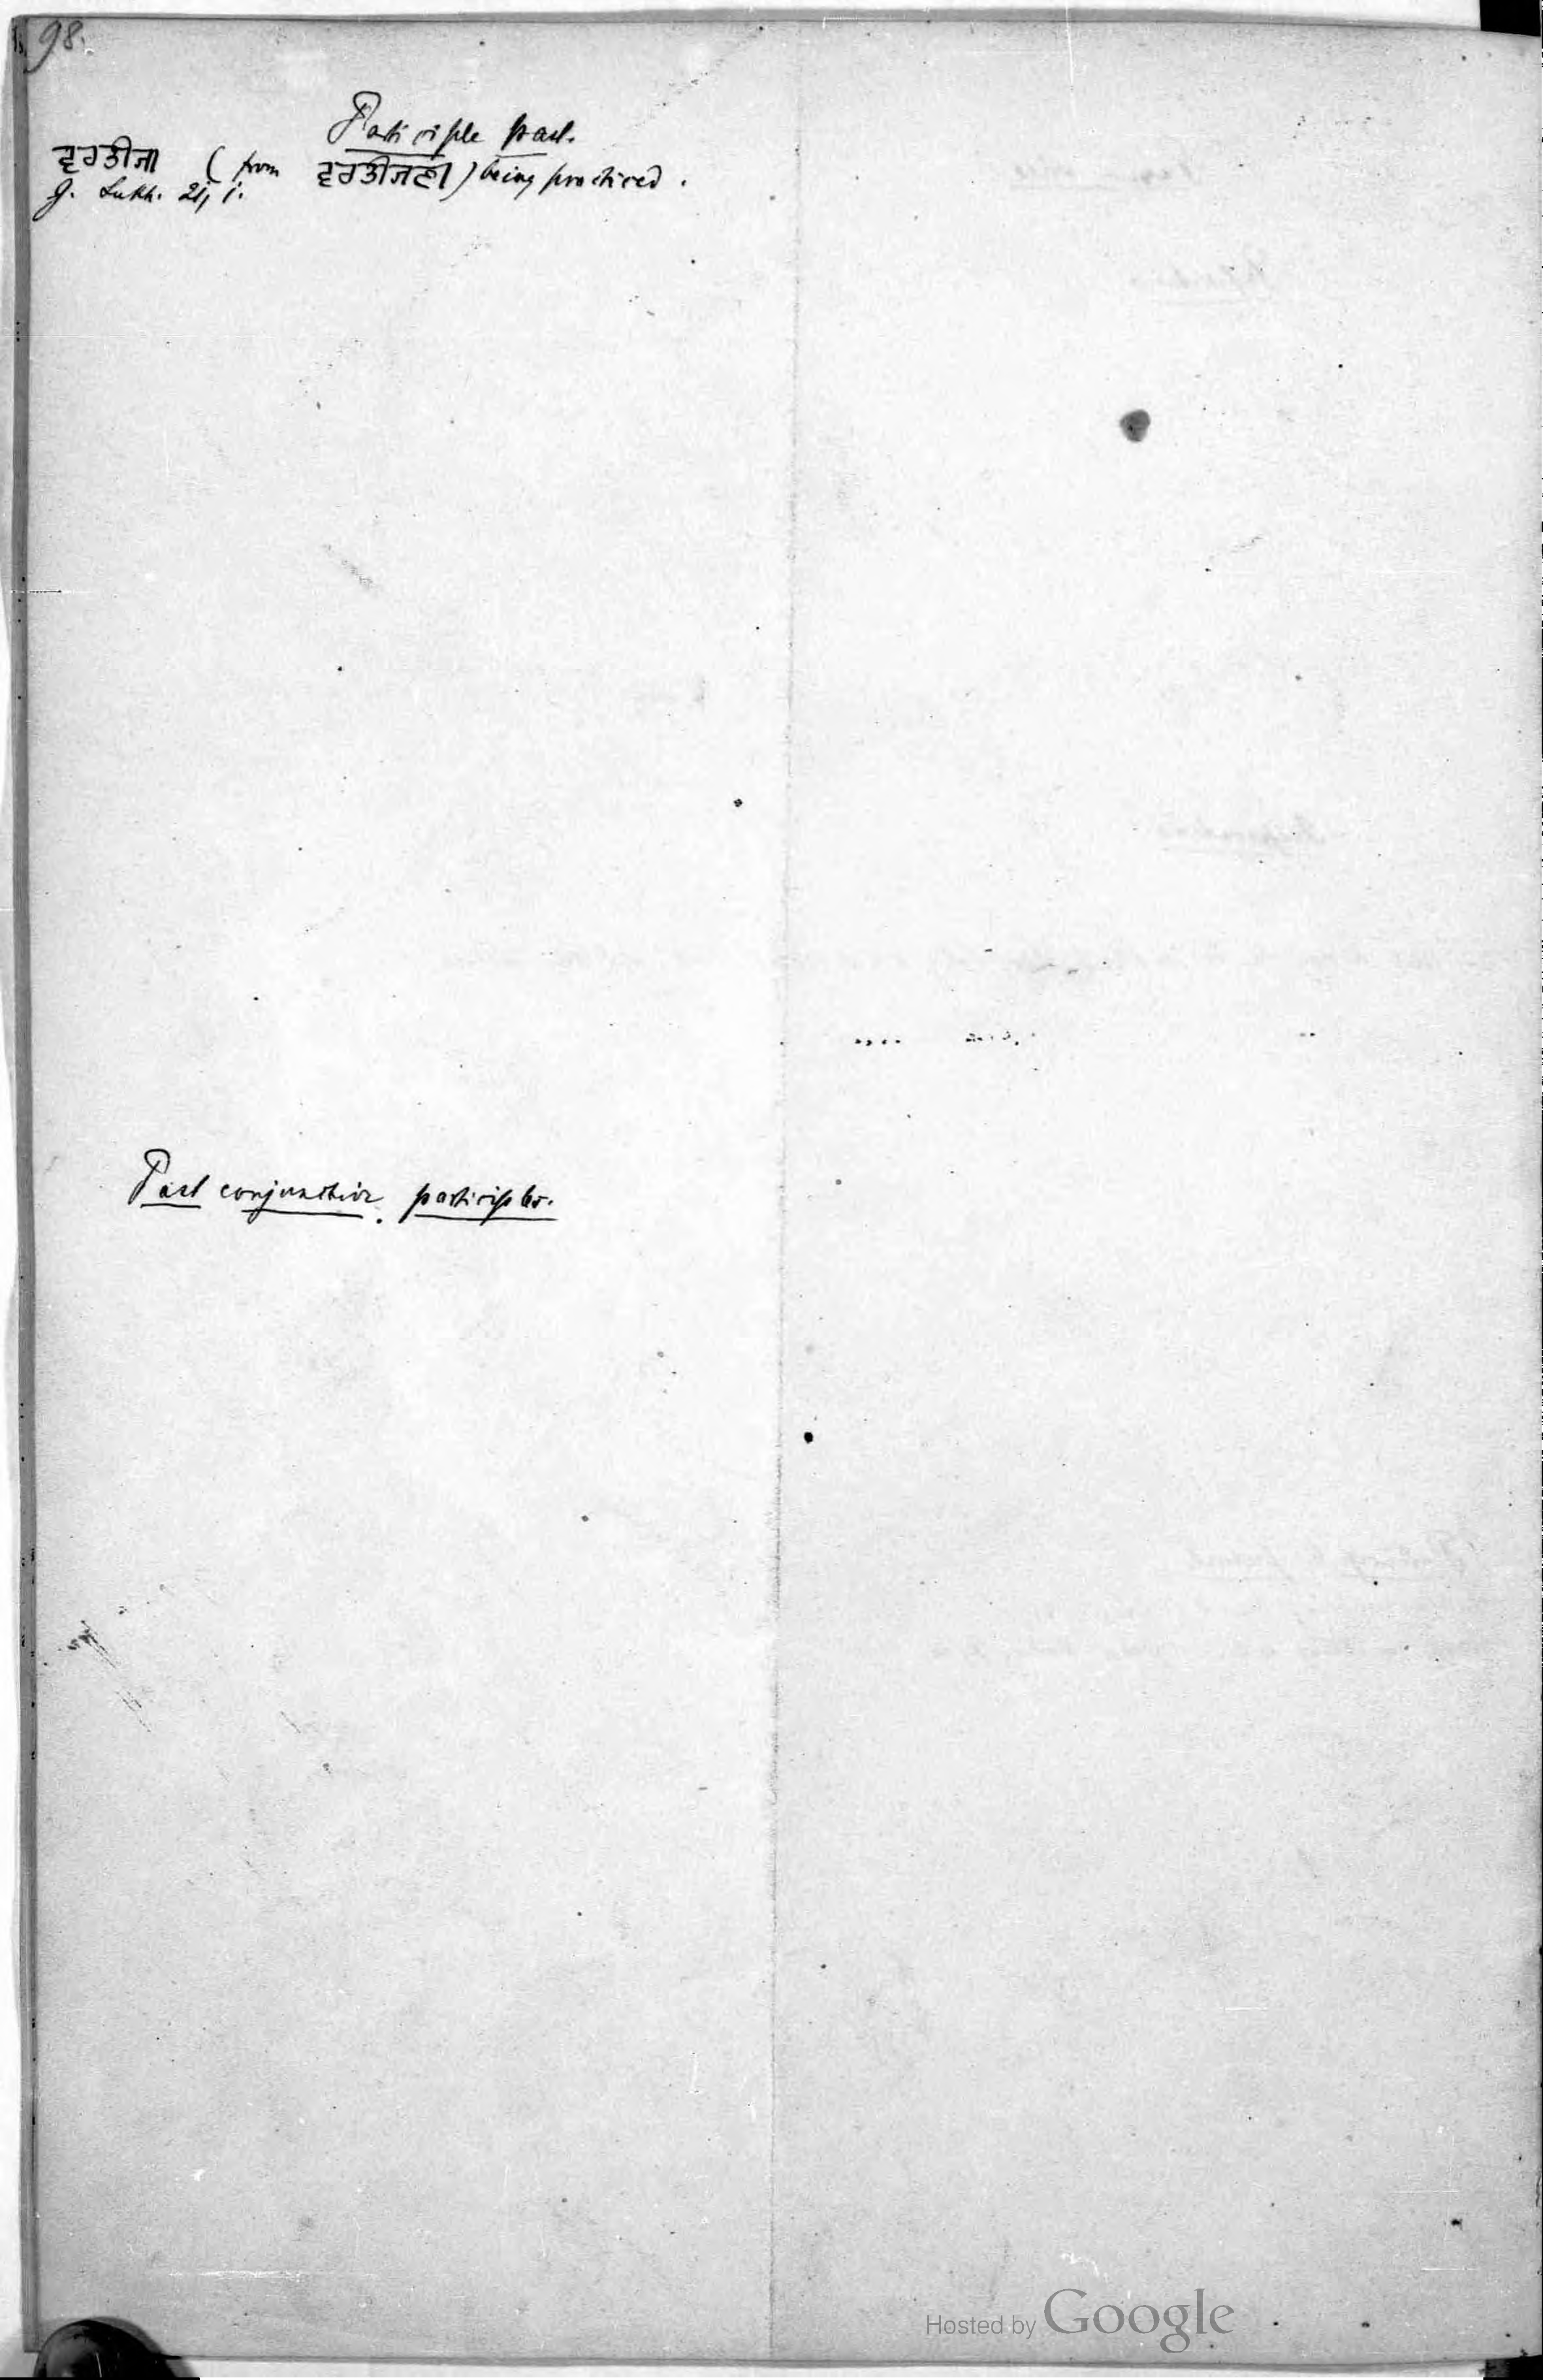 98.
Participle past.
ਵਰਤੀਜਾ (from ਵਰਤੀਜਣਾ) being practiced.
G. Sukh. 21, 1.
Past conjunctive participles.
Hosted by Google